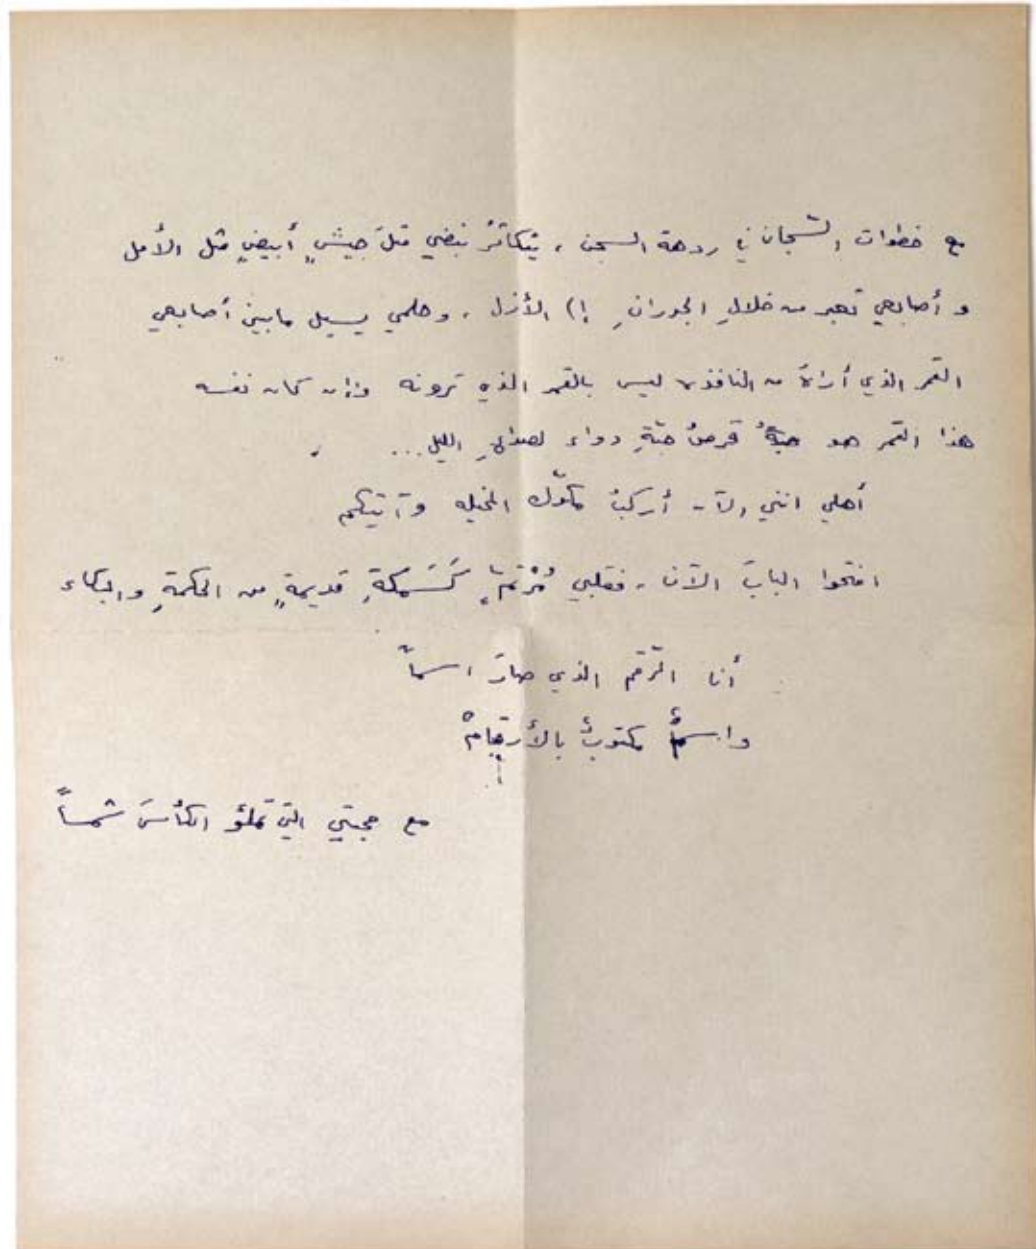 مع خطوات السّجان في ردهة السجن ، يتكاثرُ نبضي مثلَ جيشٍ أبيضٍ مثل الأمل
و أصابعي تعبر من خلالِ الجدرانِ إلى الأزل ، وحلمي يسيل مابين أصابعي
القمر الذي أراهُ من النافذه ليس بالقمر الذي ترونه وإن كان نفسه
هذا القمر هو حبّةُ قرصُ حبّةِ دواء لصداعِ الليل...
أهلي انني الآن أركبُ مكّوك المخيله وآتيكم
افتحوا البابَ الآن ، فقلبي مُرْتمٍ كَسَمكةٍ قديمةٍ من الحكمةِ والبكاء
أنا الرّقم الذي صارَ اسماً
واسمٌ مكتوبٌ بالأرقامْ
مع محبتي التي تملؤ الكأسَ شمساً